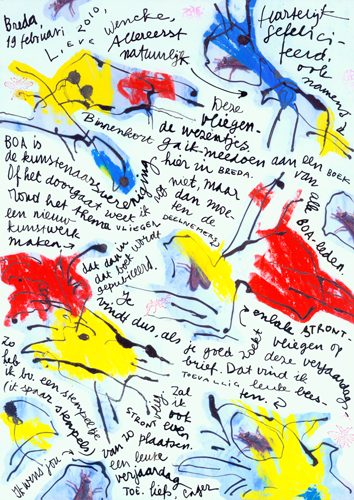 Breda,
19 februari 2010,
Lieve
Wencke,
Allereerst
natuurlijk
Hartelijk
gefelici-
feerd,
ook
namens
Deze
vliegen-
de wezentjes.
Binnenkort ga ik meedoen aan een BOEK
hier in BREDA.
van alle
BOA-leden.
BOA is
de kunstenaarsvereniging
Of het doorgaat weet ik
niet, maar
Rond het thema VLIEGEN
dan moe-
ten de
DEELNEMERS
een nieuw
kunstwerk
maken →
dat dan in
dat boek wordt
gepubliceerd.
Je
vindt dus, als je goed zoekt
enkele STRONT-
vliegen op
deze verjaardags-
brief. Dat vind ik
TOEVALLIG leuke bees-
ten.
Zo
heb
ik bv. een stempeltje
(ik spaar stempels)
van zo
STRONT
vlieg
Zal
ik
ook
even
plaatsen.
Ik wens jou →
een leuke
verjaardag
TOE. liefs,